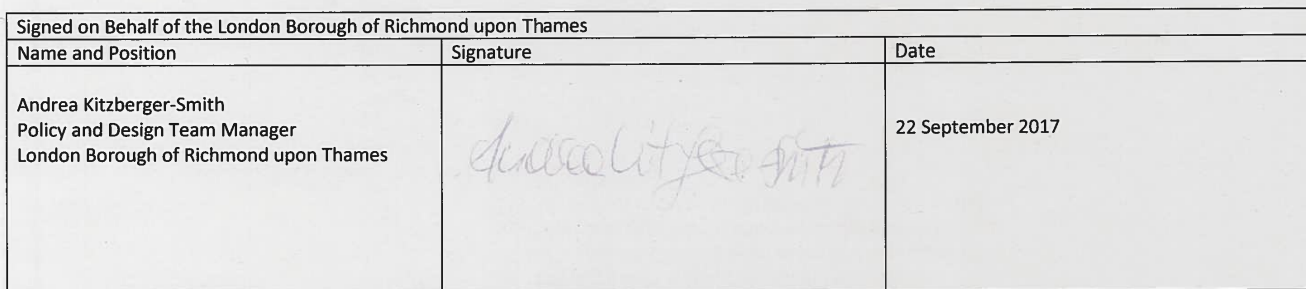 Signed on Behalf of the London Borough of Richmond upon Thames
Name and Position Signature Date
Andrea Kitzberger-Smith
Policy and Design Team Manager
London Borough of Richmond upon Thames
22 September 2017